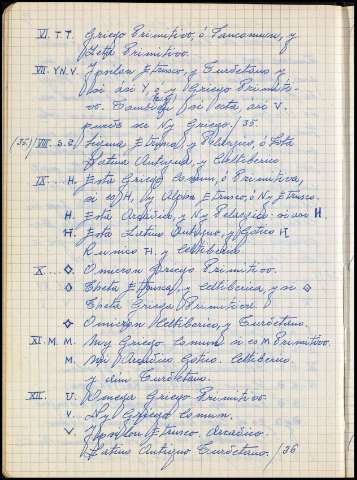 VI. T.T. Griego Primitivo, ó Comun, y
Zeta Primitivo.
VII. Y.N.V. Ypsilon Etrusco, y Turdetano y
si asi Y, y Griego Primiti-
vo. Tambien si esta asi V.
puede ser Ny Griego. /35
(35) VIII. S.2. Sigma Etrusca, y Pelasgo, ó Zeta
Latina Antigua, y Celtiberico
IX ... H. Eta Griego Comun, ó Primitiva,
si es H, Ny Alpha Etrusco, ó Ny Etrusco.
H. Eta Arcadia, y Ny Pelasgico si asi H.
H. Eta Latino Antiguo, y Gotico H
Runico H, y Celtiberia
X ... ◇. Omicron Griego Primitivo.
◇ Theta Etrusca, y Celtiberica, y si ◇
Theta Griega Primitiva
◇ Omicron Celtiberico, y Turdetano.
XI. M. M. Moy Griego Comun si es M Primitivo.
M. Mi Arcadico Gotico. Celtiberico
y Turdetano.
XII. U. Omega Griego Primitivo.
V. Ny Griego Comun.
V. Ypsilon Etrusco. Arcadico.
Latino Antiguo Turdetano. /36